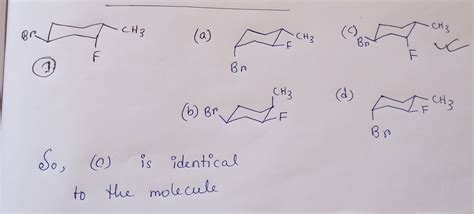 Br CH3 F
①
(a) F CH3 Br
(c) Br CH3 F
(b) Br CH3 F
(d) CH3 F Br
So, (c) is identical
to the molecule